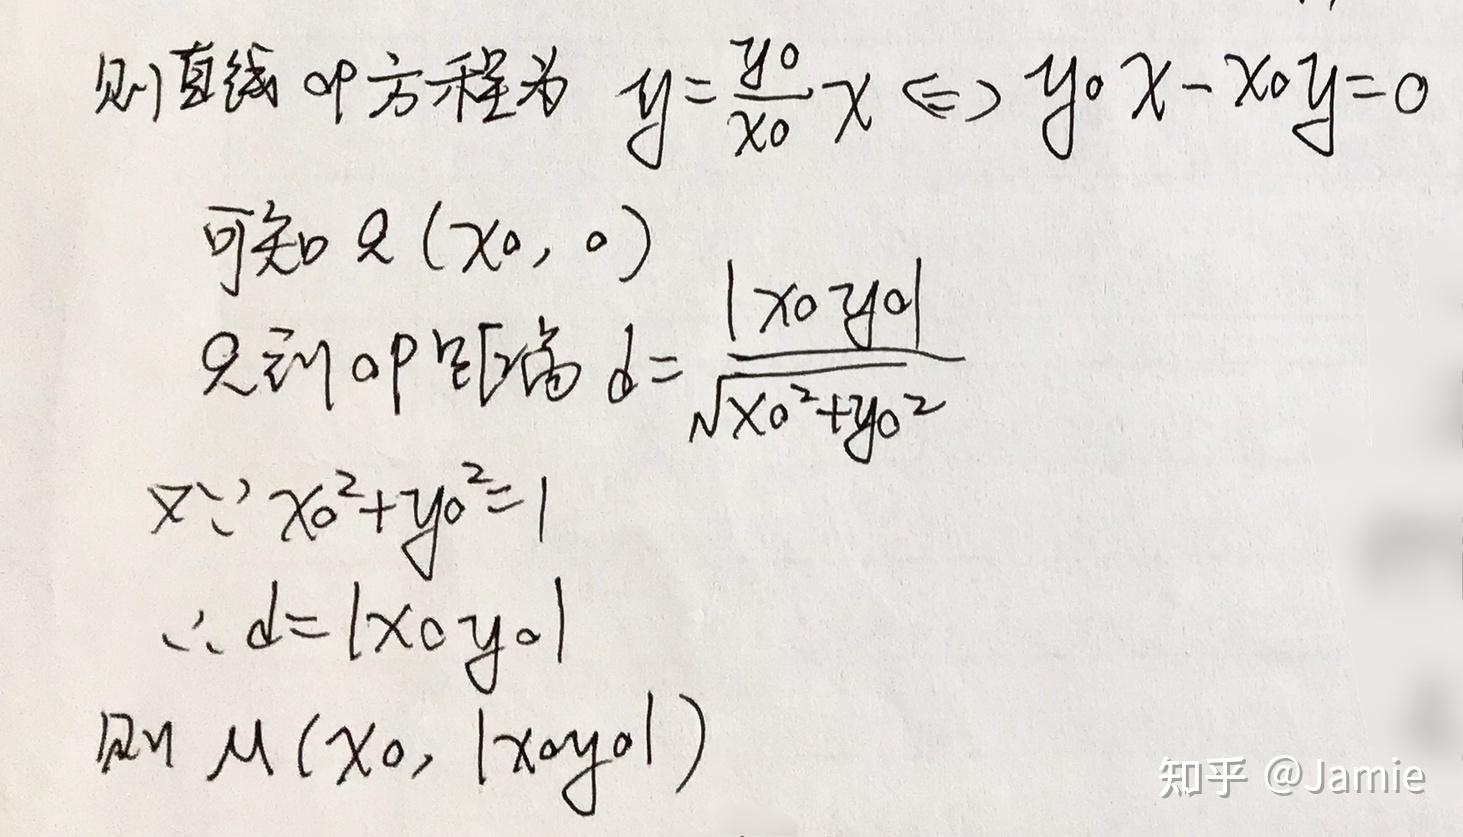 则直线OP方程为 y=y0/x0 x ⇔ y0x-x0y=0
可知Q(x0, 0)
Q到OP距离 d=|x0y0|/√x0²+y0²
又∵x0²+y0²=1
∴d=|x0y0|
则M(x0, |x0y0|)
知乎 @Jamie